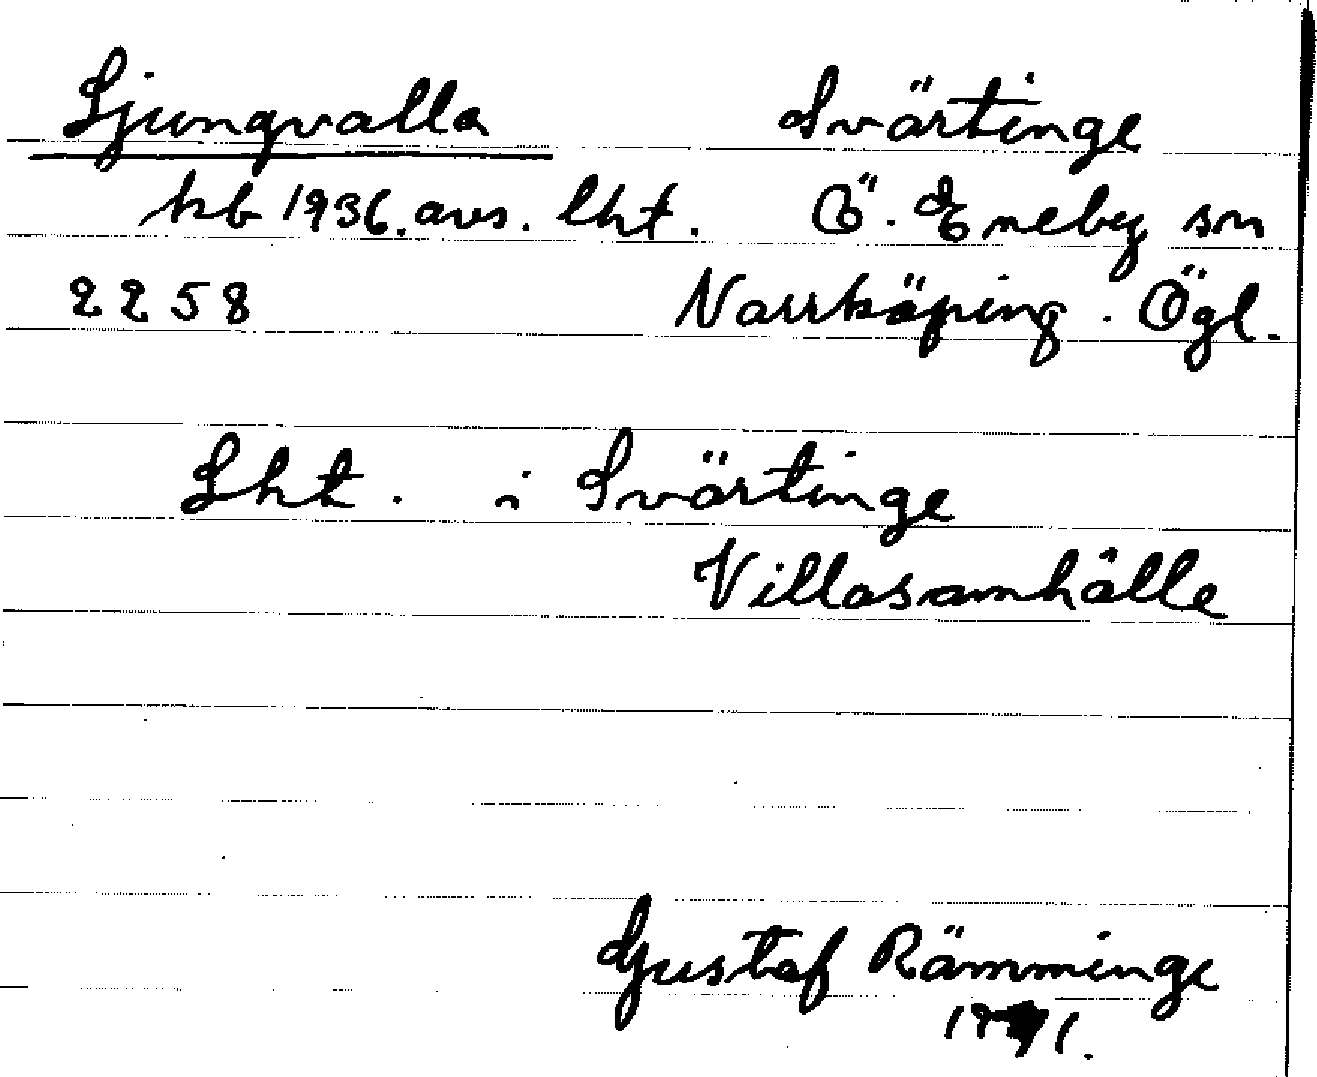 Ljungvalla Svärtinge
kb 1936. avs. lht. Ö. Eneby sn
2258 Norrköping. Ögl.
Lht. i Svärtinge
Villasamhälle
Gustaf Rämminge